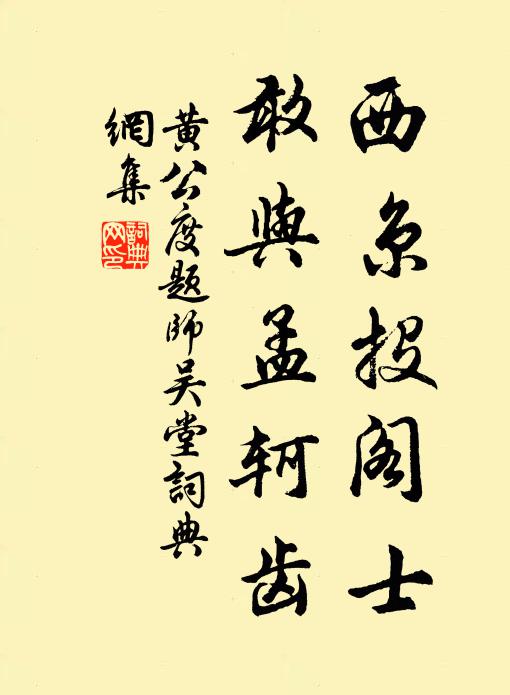 西京投阁士
敢與孟轲齿
黄公度题師吴堂詞典
網集
詞典
网印